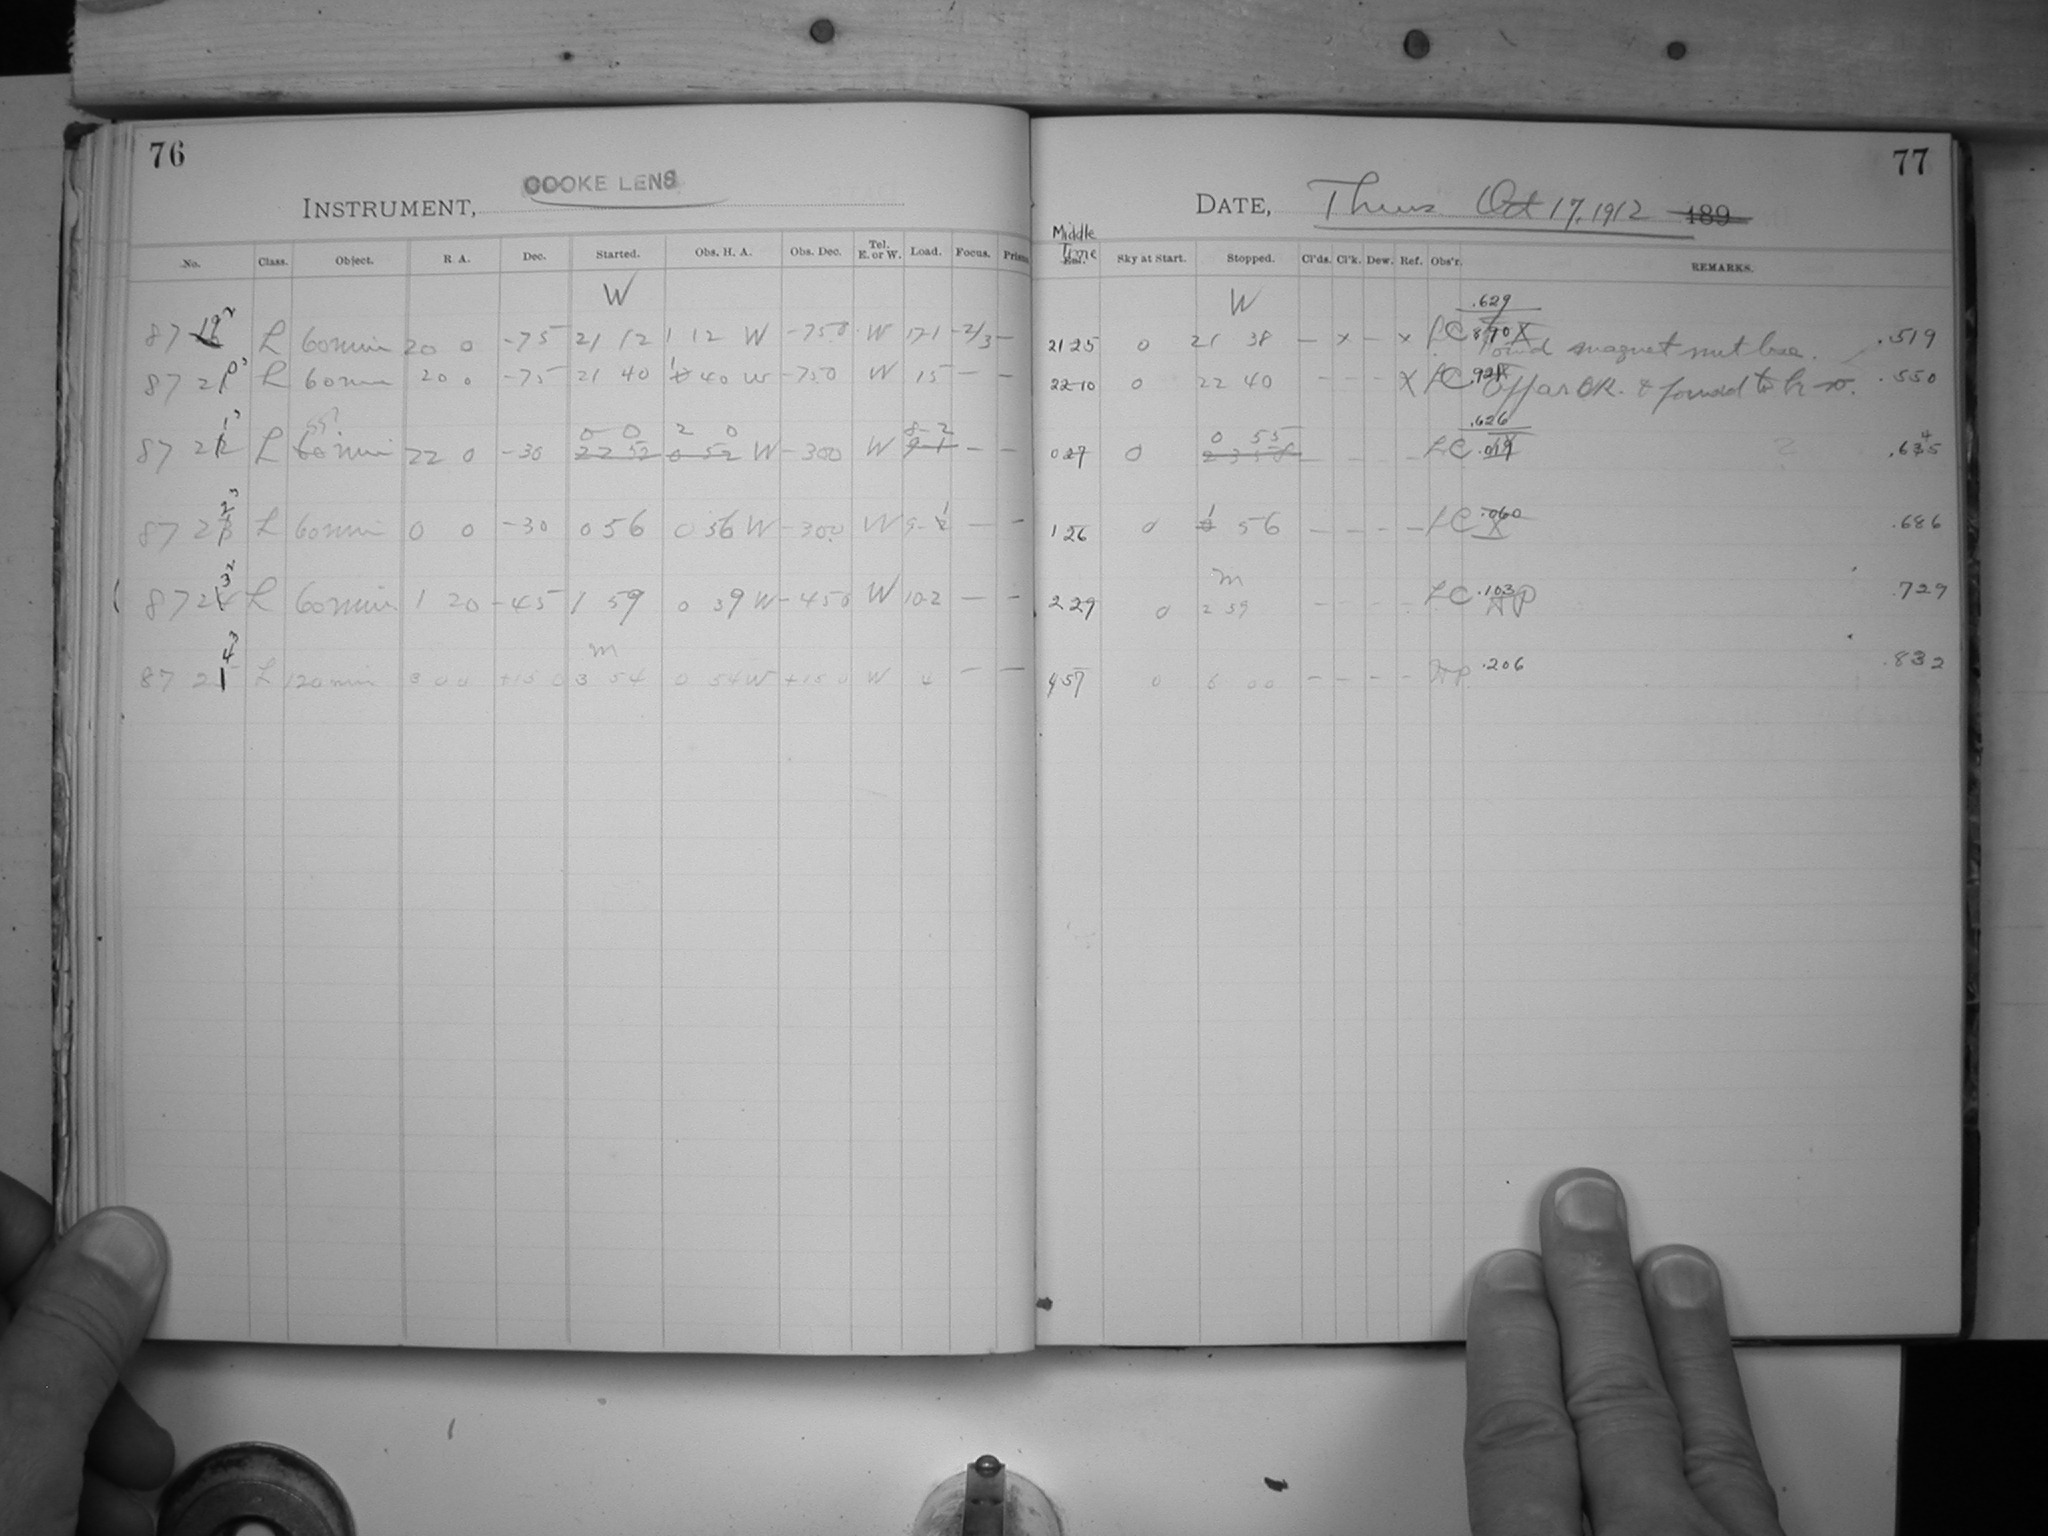 76
COOKE LENS
INSTRUMENT,
No. Class. Object. R. A. Dec. Started. Obs. H. A. Obs. Dec. Tel. E. or W. Load. Focus. Prism
W
87 L 60 min 20 0 -75 21 12 1 12 W -750 W 171 -2/3 —
87 2 L 60 min 20 0 -75 21 40 1 40 W -750 W 15 — —
0 0 2 0 8-2
87 2 L 60 min 22 0 -30 22 52 0 52 W -300 W 9-1 — —
87 2 L 60 min 0 0 -30 0 56 0 56 W -300 W 9-1 — —
87 2 L 60 min 1 20 -45 1 59 0 39 W -450 W 10-2 — —
m
87 2 L 120 min 3 00 +15 0 3 54 0 54 W +150 W 4 — —
77
DATE, Thurs Oct 17, 1912 189
Middle Time
Sky at Start. Stopped. Cl'ds. Cl'k. Dew. Ref. Obs'r. REMARKS.
W .629
21 25 0 21 38 — x — x LC found magnet nut loose. .519
22 10 0 22 40 - - - X LC OK. & found to be so. .550
0 55 .626
0 27 0 LC .635
1 26 0 1 56 — — — — LC .060 .686
m
2 29 0 2 59 - - - - LC .103 .729
4 57 0 6 00 - - - - .206 .832